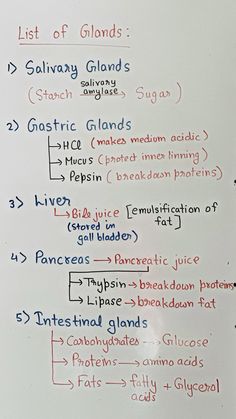 List of Glands:
1) Salivary Glands
salivary
(Starch amylase→ Sugar)
2) Gastric Glands
→HCl (makes medium acidic)
→Mucus (protect inner linning)
→Pepsin (breakdown proteins)
3) Liver
→Bile juice [emulsification of
(stored in fat]
gall bladder)
4) Pancreas → Pancreatic juice
→Trypsin→breakdown proteins
→Lipase→breakdown fat
5) Intestinal glands
→Carbohydrates → Glucose
→Proteins → amino acids
→Fats → fatty + Glycerol
acids